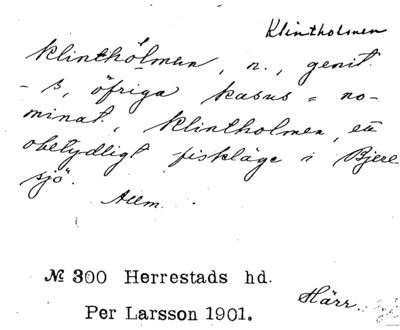 Klintholmen
Klinthölmen, n., genit.
- s, öfriga kasus = no-
minat., Klintholmen, ett
obetydligt fiskläge i Bjere-
sjö.
Allm.
№ 300 Herrestads hd.
Per Larsson 1901.
Härr.